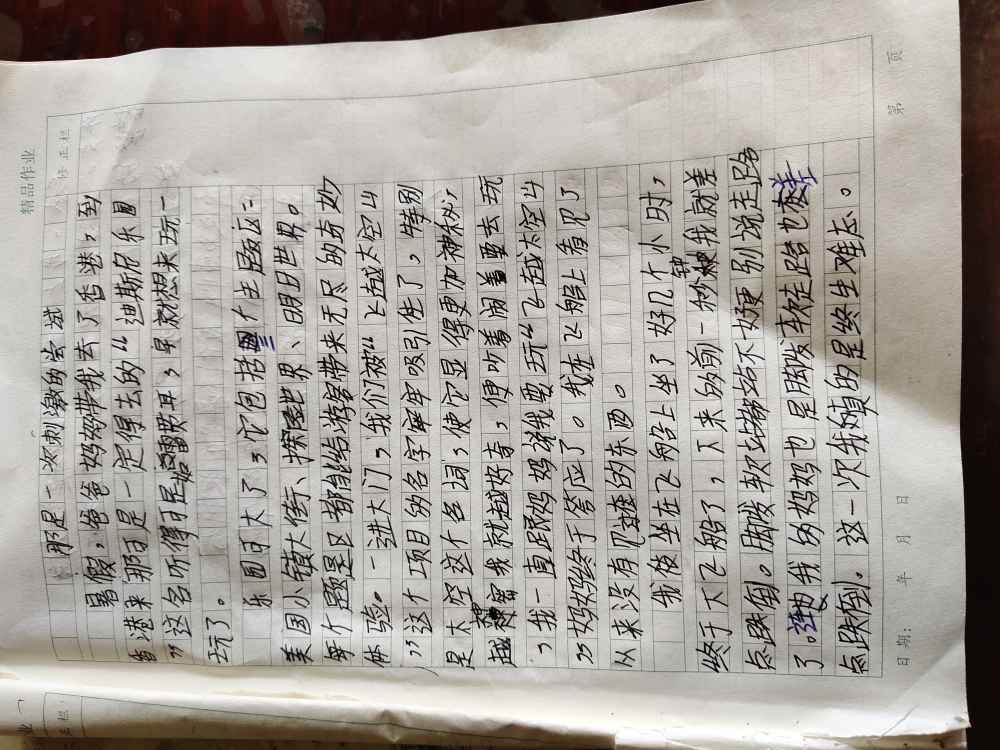 精品作业
修正栏
那是一次刺激的尝试
暑假，爸爸妈妈带我去了香港，到
香港来那可是一定得去的“迪斯尼乐园
”这名听得可是如雷贯耳，早就想来玩一
玩了。
乐园可大了，它包括四个主题区：
美国小镇大街、探险世界、明日世界。
每个主题区都能给游客带来无尽的奇妙
体验。一进大门，我们被“飞越太空山
”这个项目的名字牢牢吸引住了，特别
是太空这个名词，使它显得更加神秘，
越神密我就越好奇，便吵着闹着要去玩
，我一直跟妈妈说我要玩“飞越太空山
”妈妈终于答应了。我在飞船上看见了
从来没有的东西。
我俩坐在飞船上坐了好几个小时，
终于大飞船了，下来的前一秒钟我就差
点跌倒。脚酸软软不好受别说走路
了。我的妈妈也是脚酸连走路也差
点跌倒。这一次我真的是终生难忘。
日期： 年 月 日
第 页